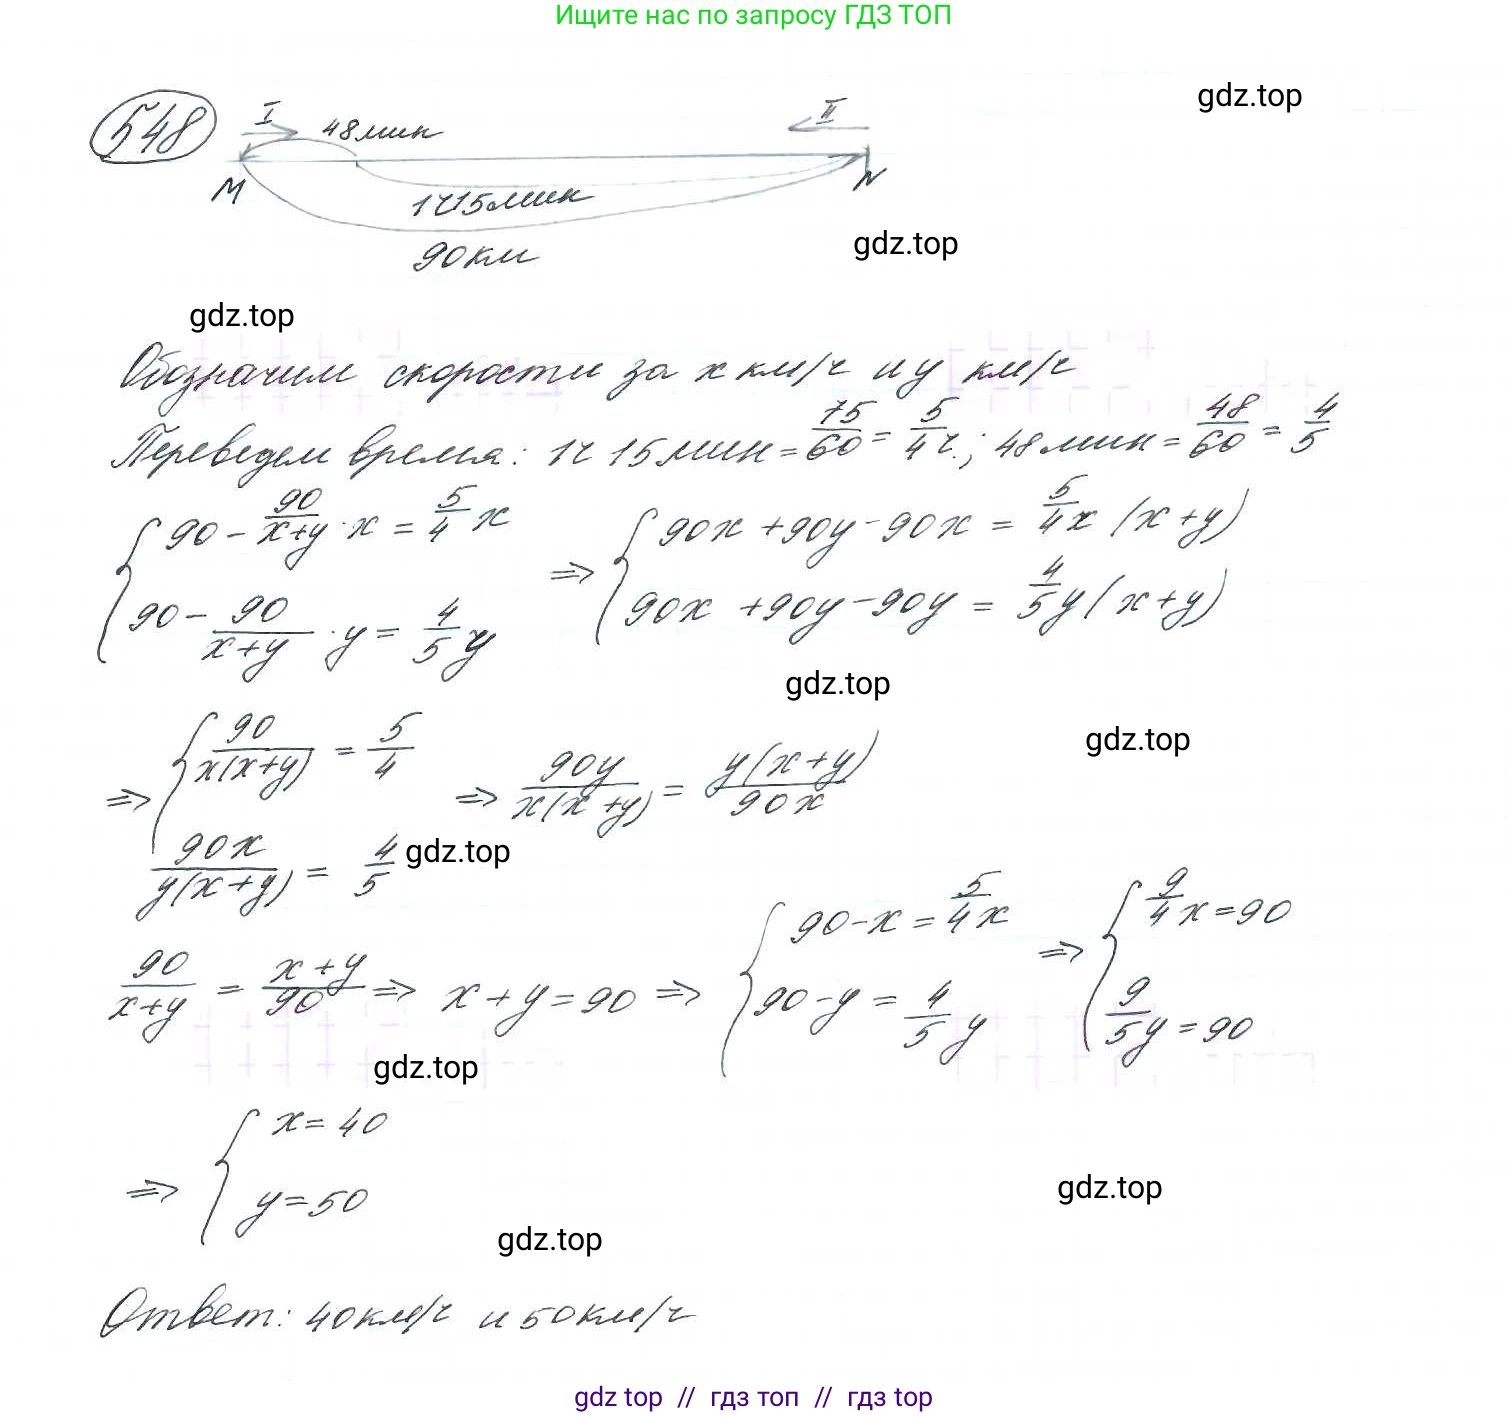 Ищите нас по запросу ГДЗ ТОП
gdz.top
548
I 48мин II
M N
1ч15мин
gdz.top
90км
gdz.top
Обозначим скорости за x км/ч и y км/ч
Переведем время: 1ч 15мин = 75/60 = 5/4 ч.; 48мин = 48/60 = 4/5
{ 90 - 90/(x+y) · x = 5/4 x ⇒ { 90x + 90y - 90x = 5/4 x (x+y)
90 - 90/(x+y) · y = 4/5 y 90x + 90y - 90y = 4/5 y (x+y)
gdz.top
gdz.top
⇒ { 90/(x(x+y)) = 5/4 ⇒ 90y/(x(x+y)) = y(x+y)/(90x)
90x/(y(x+y)) = 4/5
gdz.top
90/(x+y) = (x+y)/90 ⇒ x+y = 90 ⇒ { 90 - x = 5/4 x ⇒ { 9/4 x = 90
90 - y = 4/5 y 9/5 y = 90
gdz.top
⇒ { x = 40
y = 50
gdz.top
gdz.top
Ответ: 40км/ч и 50км/ч
gdz top // гдз топ // гдз top